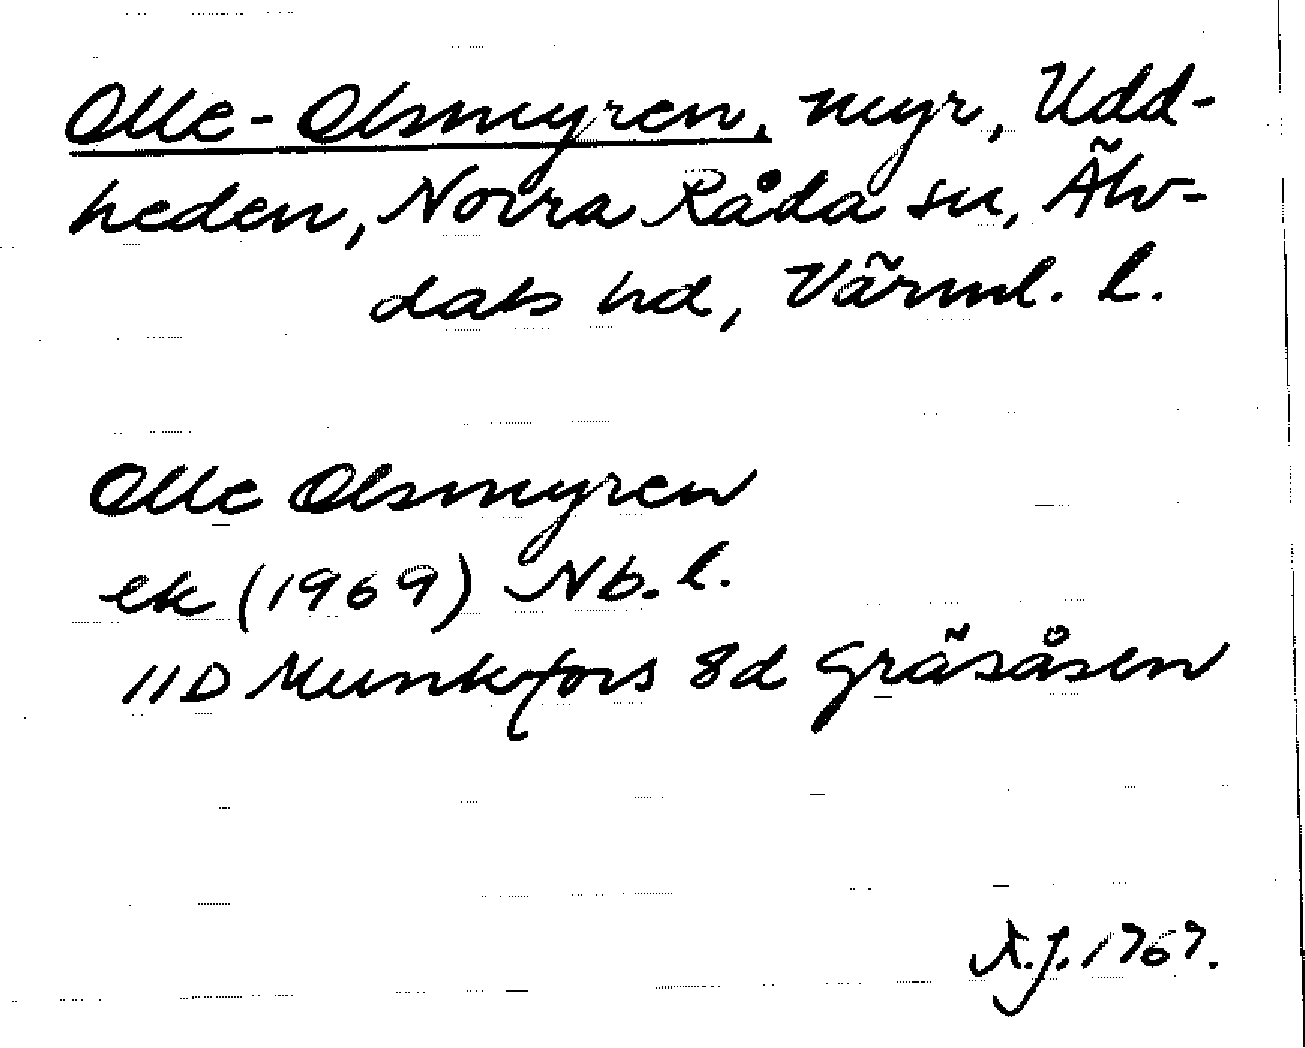 Olle-Olsmyren, myr, Udd-
heden, Norra Råda sn, Älv-
dals hd, Värml. l.
Olle Olsmyren
ek (1969) Nb. l.
11D Munkfors 8d Gräsåsen
A.J. 1969.